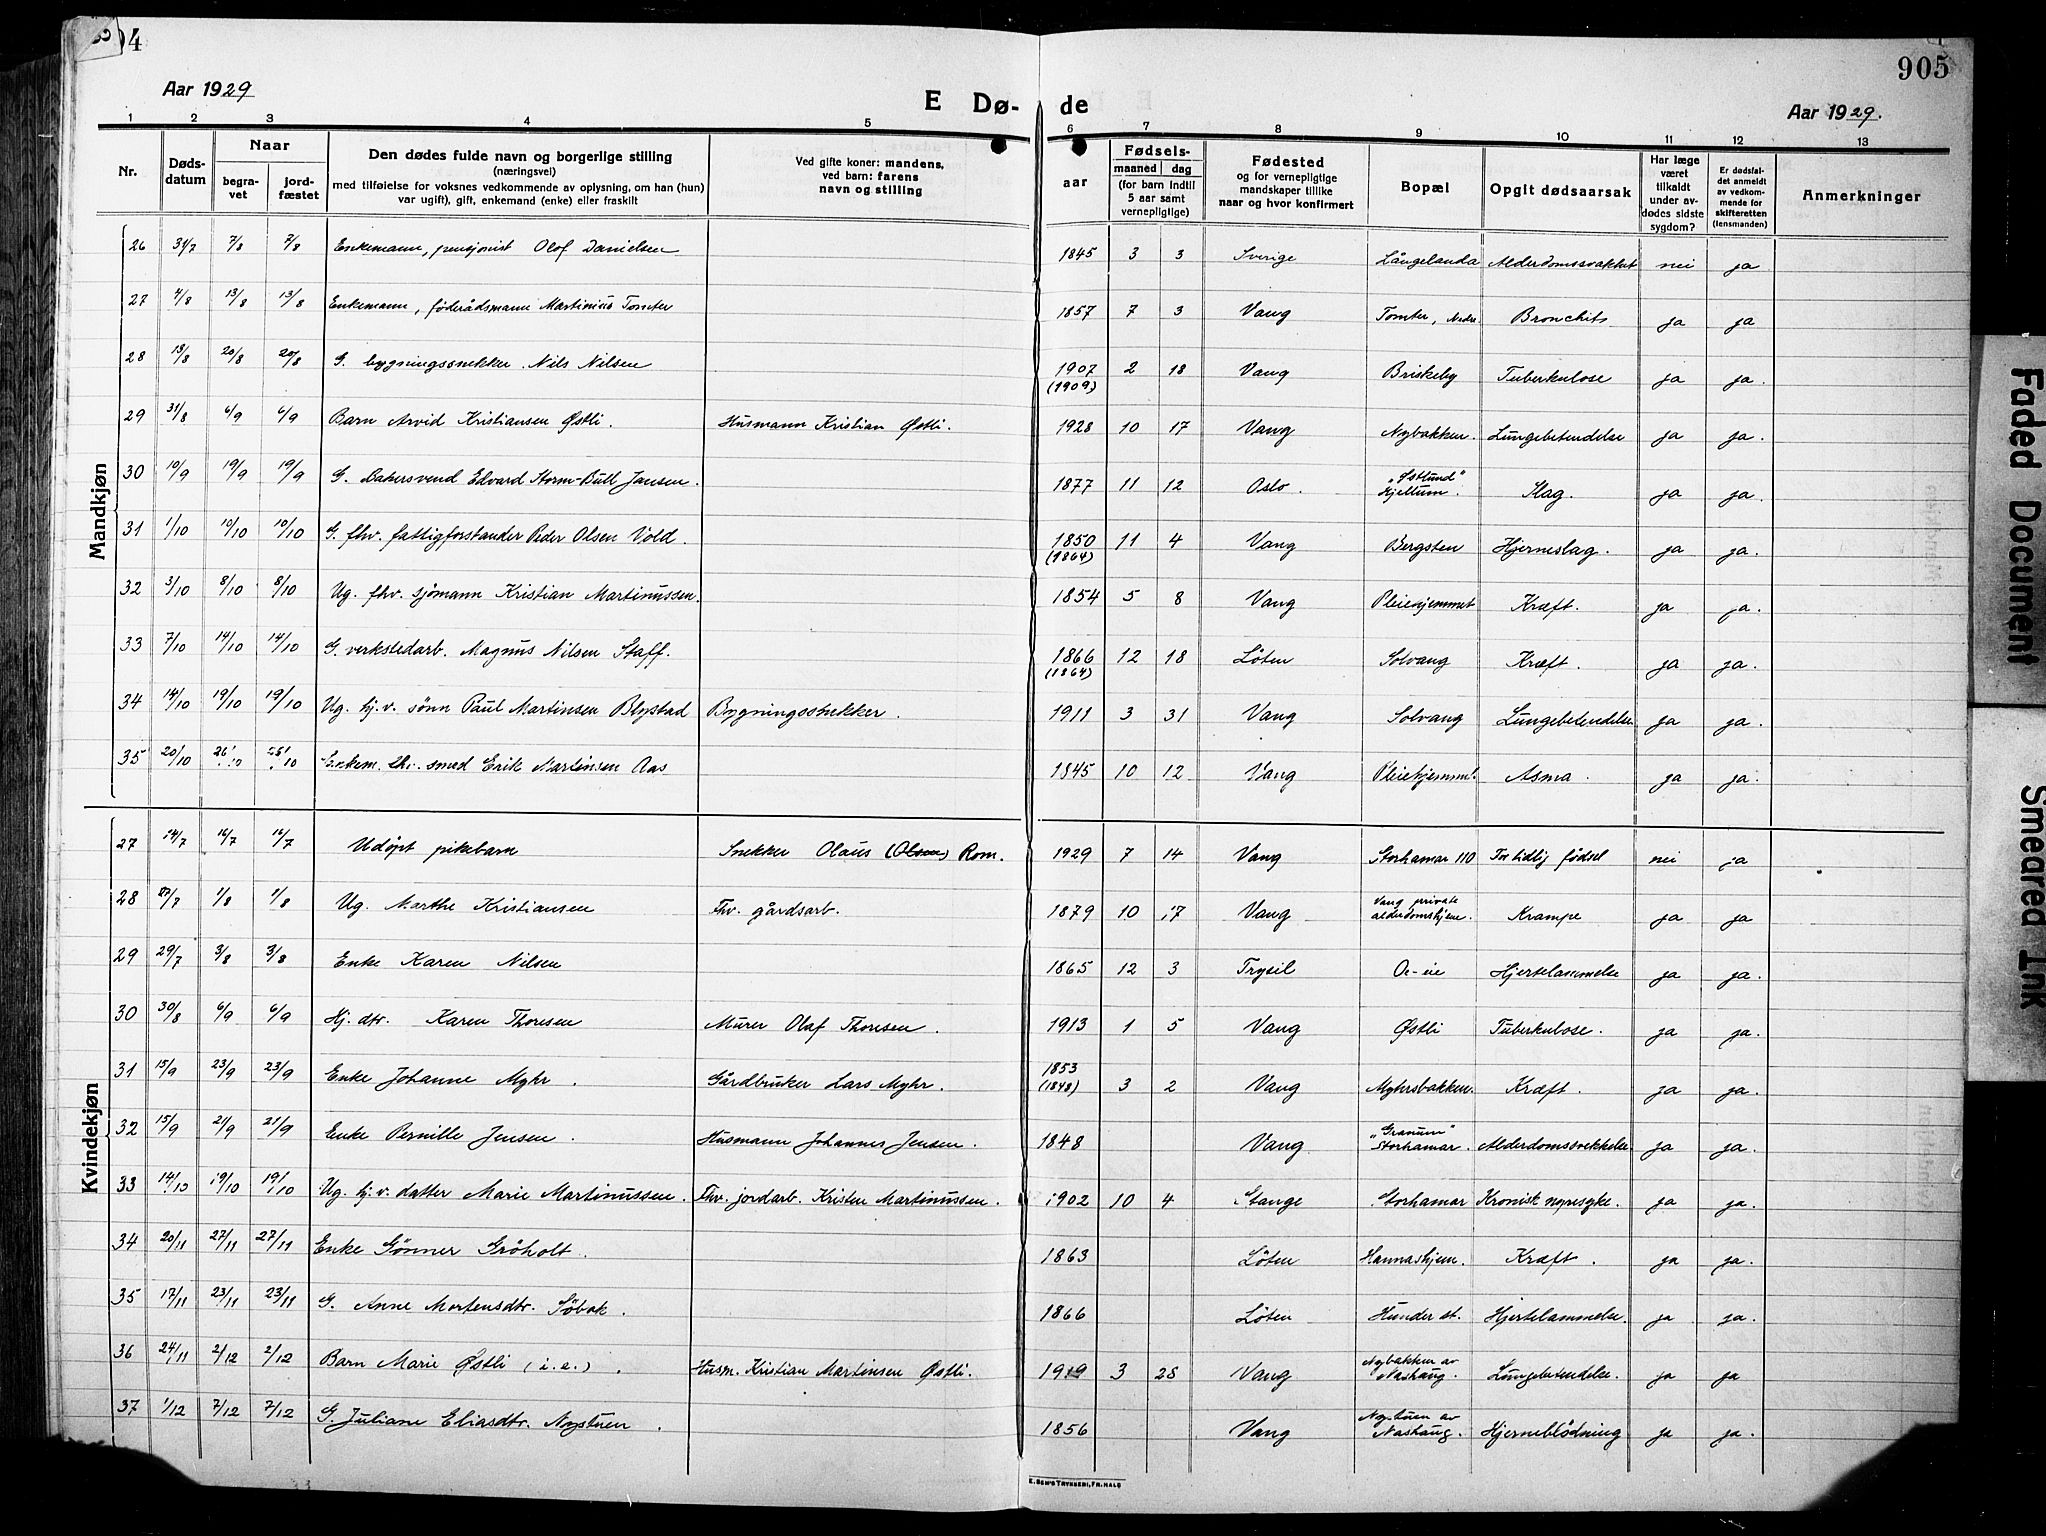 04
905
Aar 1929
E Dø-
de
Aar 1929.
1 2 3 4 5 6 7 8 9 10 11 12 13
Nr.
Døds-
datum
Naar
begra-
vet
jord-
fæstet
Den dødes fulde navn og borgerlige stilling
(næringsvei)
med tilføielse for voksnes vedkommende av oplysning, om han (hun)
var ugift), gift, enkemand (enke) eller fraskilt
Ved gifte koner: mandens,
ved barn: farens
navn og stilling
aar
Fødsels-
maaned dag
(for barn indtil
5 aar samt
vernepligtige)
Fødested
og for vernepligtige
mandskaper tillike
naar og hvor konfirmert
Bopæl
Opgit dødsaarsak
Har læge
været
tilkaldt
under av-
dødes sidste
sygdom?
Er dødsfal-
det anmeldt
av vedkom-
mende for
skifteretten
(lensmanden)
Anmerkninger
Mandkjøn
26 31/7 7/8 7/8 Enkemann, pensjonist Olof Danielsen 1845 3 3 Sverige Långelanda Alderdomssvakhet nei ja
27 4/8 13/8 13/8 Enkemann, føderådsmann Martinius Tomter 1857 7 3 Vang Tomter, Bronchits ja ja
28 13/8 20/8 20/8 G. bygningssnekker Nils Nilsen 1907 2 18 Vang Briskeby Tuberkulose ja ja.
(1909)
29 31/8 6/9 6/9 Barn Arvid Kristiansen Østli. Husmann Kristian Østli. 1928 10 17 Vang Nybakken. Lungebetendelse ja ja.
30 10/9 19/9 19/9 G. Bakersvend Edvard Storm-Bull Jansen. 1877 11 12 Oslo. "Østlund" Slag. ja ja.
Hjellum.
31 1/10 10/10 10/10 G. fhv. fattigforstander Peder Olsen Vold. 1850 11 4 Vang Bergsten Hjerneslag. ja ja.
(1864)
32 3/10 8/10 8/10 Ug. fhv. sjömann Kristian Martinussen. 1854 5 8 Vang Pleiehjemmet Kræft. ja ja.
33 7/10 14/10 14/10 G. verkstedarb. Magnus Nilsen Staff. 1866 12 18 Löten Solvang Kræft. ja ja.
(1864)
34 14/10 19/10 19/10 Ug. hj. v. sönn Paul Martinsen Blystad Bygningssnekker. 1911 3 31 Vang Solvang Lungebetendelse ja ja.
35 20/10 26/10 /10 Enkem. fhv. smed Erik Martinsen Aas 1845 10 12 Vang Pleiehjemm. Asma. ja ja.
Kvindekjøn
27 14/7 16/7 16/7 Udöpt pikebarn Snekker Olaus (Olsen) Rom. 1929 7 14 Vang Storhamar 110 For tidlig födsel nei ja
28 27/7 1/8 1/8 Ug. Marthe Kristiansen Fhv. gårdsarb. 1879 10 17 Vang Vang private Krampe ja ja
alderdomshjem.
29 29/7 3/8 3/8 Enke Karen Nilsen 1865 12 3 Trysil Hjertelammelse ja ja.
30 30/8 6/9 6/9 Hj. dtr. Karen Thoresen Murer Olaf Thoresen. 1913 1 5 Vang Østli Tuberkulose. ja ja.
31 15/9 23/9 23/9 Enke Johanne Myhr. Gårdbruker Lars Myhr. 1853 3 2 Vang Myhrsbakken. Kræft. ja ja.
(1848)
32 15/9 21/9 21/9 Enke Pernille Jensen. Husmann Johannes Jensen. 1848 Vang "Granum" Alderdomssvekkelse ja ja.
Storhamar.
33 14/10 19/10 19/10 Ug. hj. v. datter Marie Martinussen. Fhv. jordarb. Kristen Martinussen. 1902 10 4 Stange Storhamar Kronisk nyresyke. ja ja.
34 20/11 27/11 27/11 Enke Gönner Gröholt. 1863 Löten Hannashjem. Kræft. ja ja.
35 17/11 23/11 23/11 G. Anne Mortensdtr. Söbak. 1866 Löten Hunder st. Hjertelammelse. ja ja.
36 24/11 2/12 2/12 Barn Marie Østli (i.e.). Husm. Kristian Martinsen Østli. 3 28 Vang Nybakken av Lungebetendelse. ja ja
Nashaug.
37 1/12 7/12 7/12 G. Juliane Eliasdtr. Nystuen. 1856 Vang Nystuen av Hjerneblödning ja ja.
Nashaug.
E. SEM'S TRYKKERI, FR.HALD
Faded Document
Smeared Ink